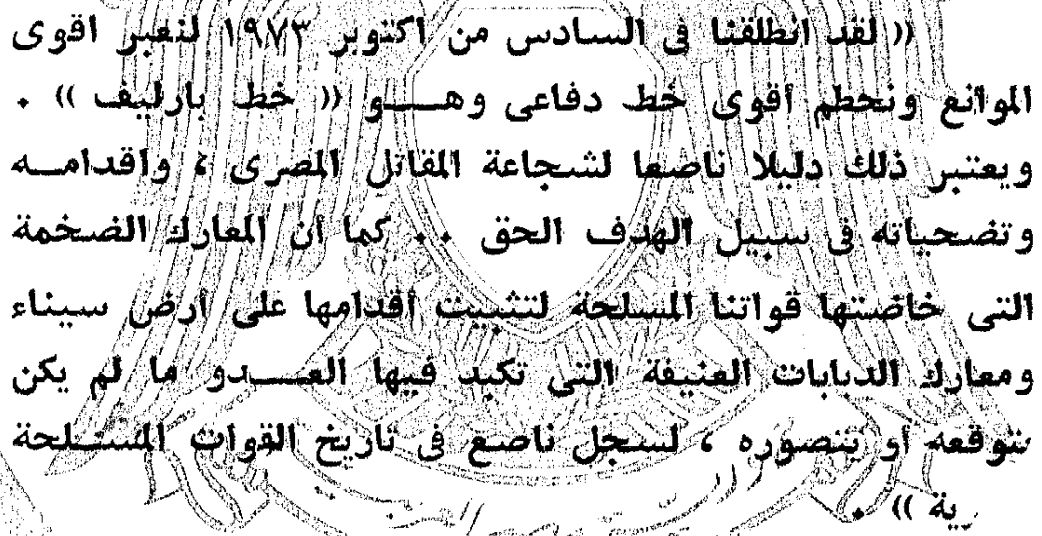 (( لقد انطلقنا فى السادس من اكتوبر ١٩٧٣ لنعبر اقوى
الموانع ونحطم أقوى خط دفاعى وهـــو (( خط بارليف )) .
ويعتبر ذلك دليلا ناصعا لشجاعة المقاتل المصرى ، واقدامـــه
وتضحياته فى سبيل الهدف الحق .. كما أن المعارك الضخمة
التى خاضتها قواتنا المسلحة لتثبيت أقدامها على أرض سيناء
ومعارك الدبابات العنيفة التى تكبد فيها العـــدو ما لم يكن
يتوقعه أو يتصوره ، لسجل ناصع فى تاريخ القوات المســلحة
رية )) .